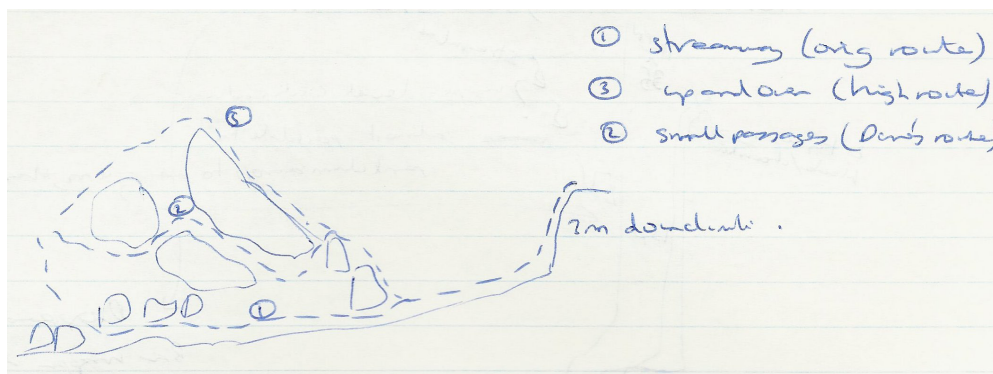 ① streamway (orig route)
③ up and over (high route)
② small passages (Dave's route)
③
②
2m downclimb.
①